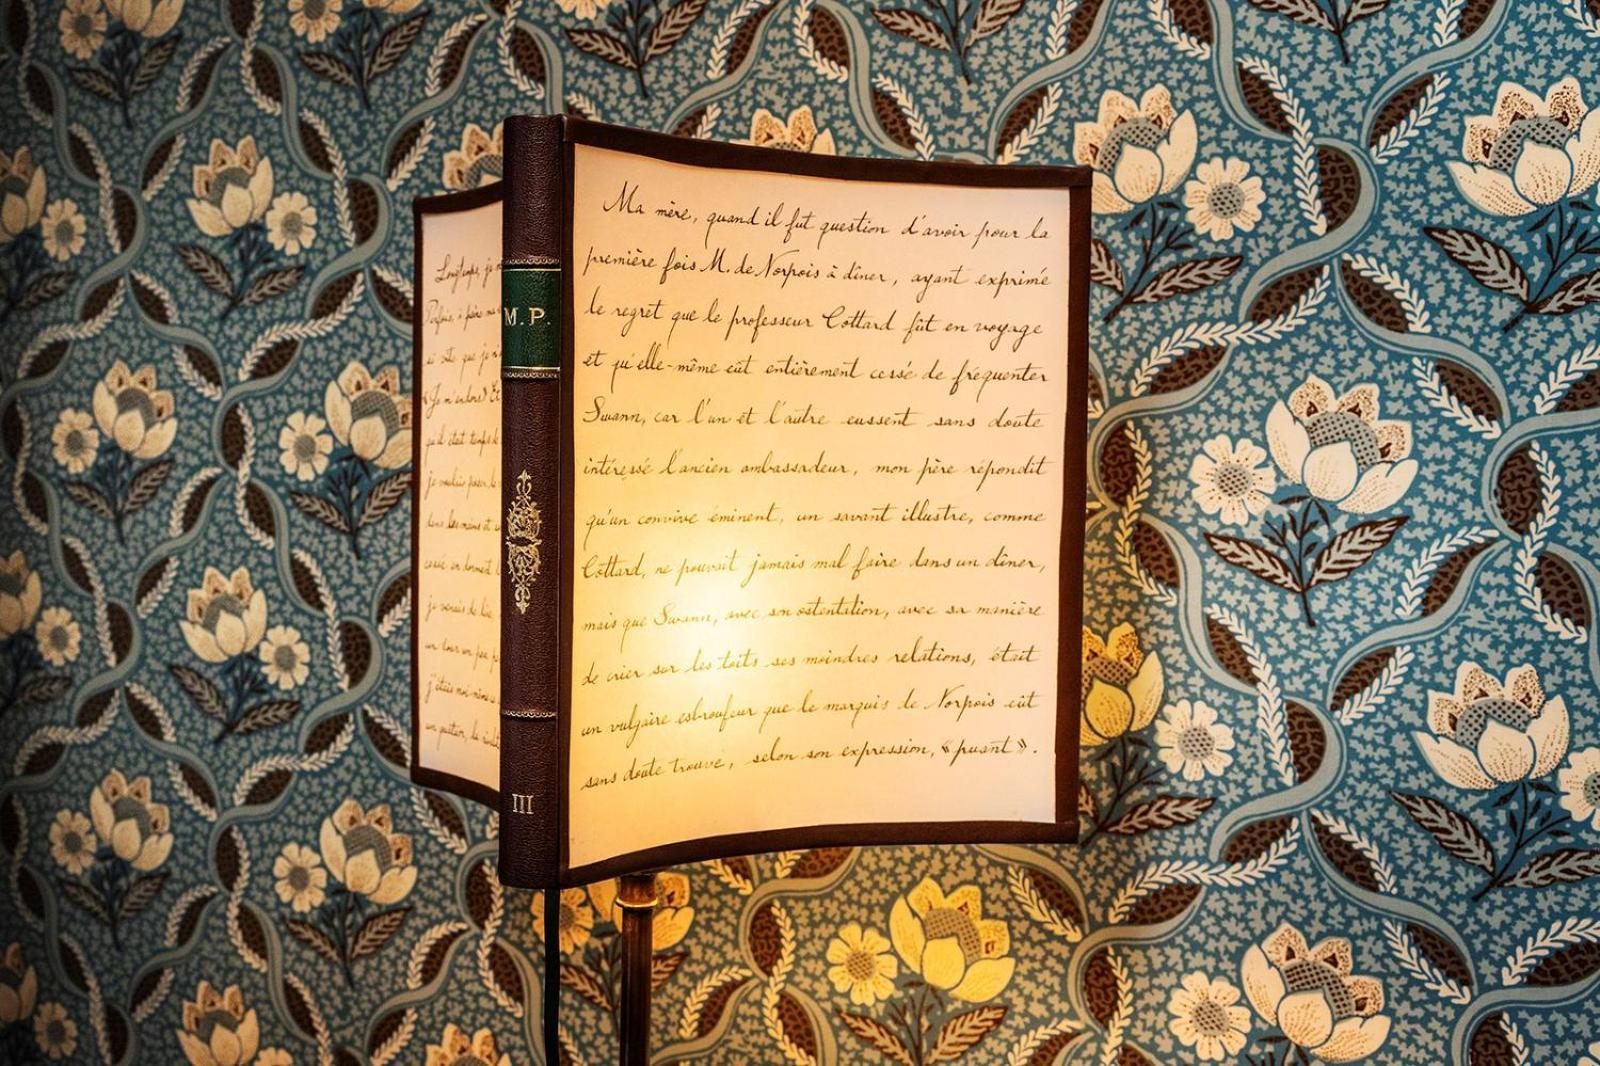 Longtemps, je
Parfois, à peine ma
si vite que je n'
« Je m'endors » Et
qu'il était temps de
je voulais poser le
dans les mains et
cessé en dormant
je venais de lire
un tour un peu p
j'étais moi-même
un quatuor, la rivalité
M.P.
III
Ma mère, quand il fut question d'avoir pour la
première fois M. de Norpois à dîner, ayant exprimé
le regret que le professeur Cottard fût en voyage
et qu'elle-même eût entièrement cessé de fréquenter
Swann, car l'un et l'autre eussent sans doute
intéressé l'ancien ambassadeur, mon père répondit
qu'un convive éminent, un savant illustre, comme
Cottard, ne pouvait jamais mal faire dans un dîner,
mais que Swann, avec son ostentation, avec sa manière
de crier sur les toits ses moindres relations, était
un vulgaire esbroufeur que le marquis de Norpois eût
sans doute trouvé, selon son expression, « puant ».